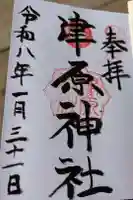 奉拝
津原神社
令和八年一月三十一日